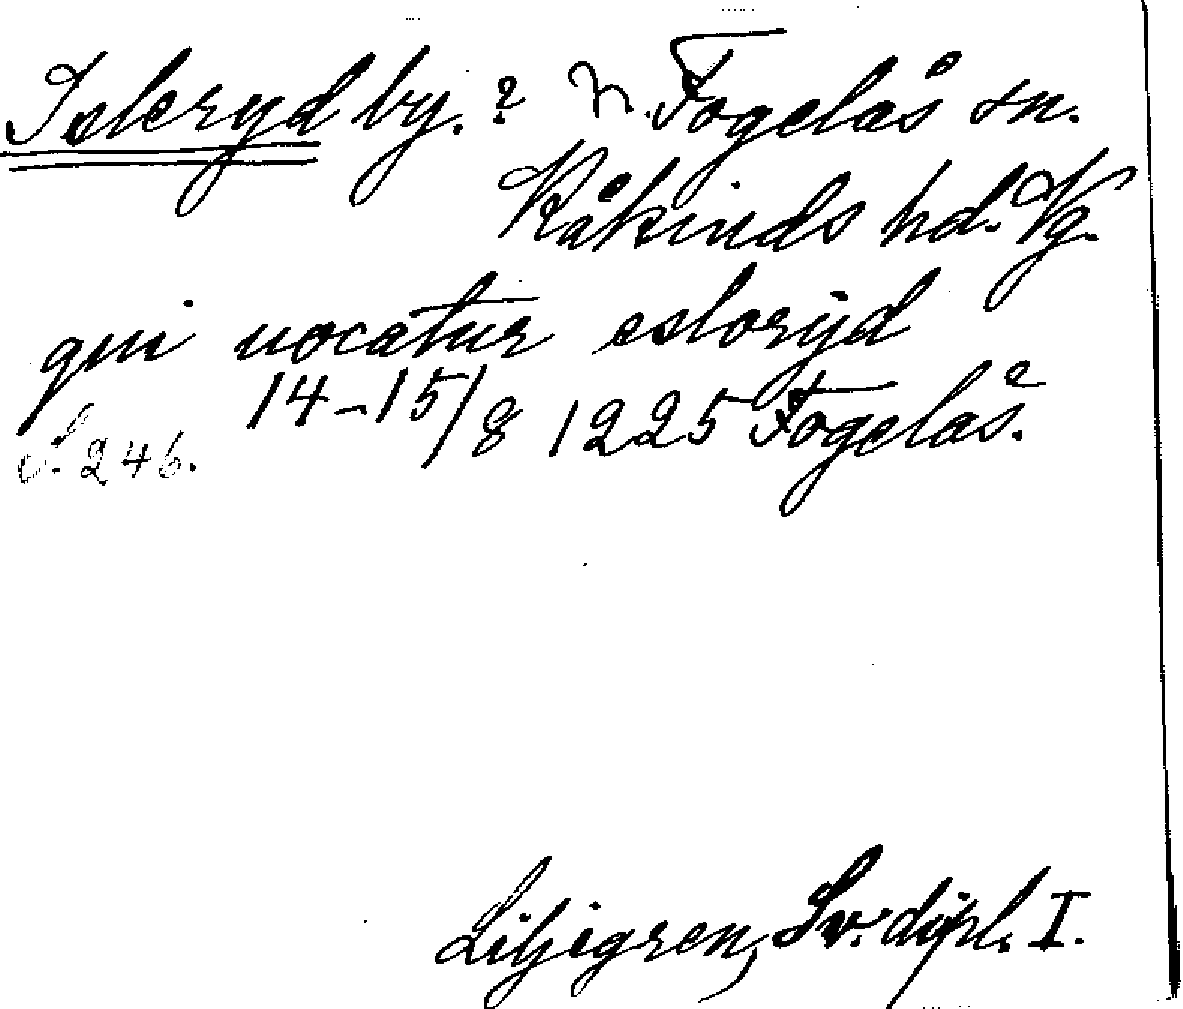 Isleryd by. ? N. Fogelås sn.
Kåkinds hd. Vg.
qui uocatur esloryd
14-15/8 1225 Fogelås?
S. 246.
Liljegren, Sv. dipl. I.